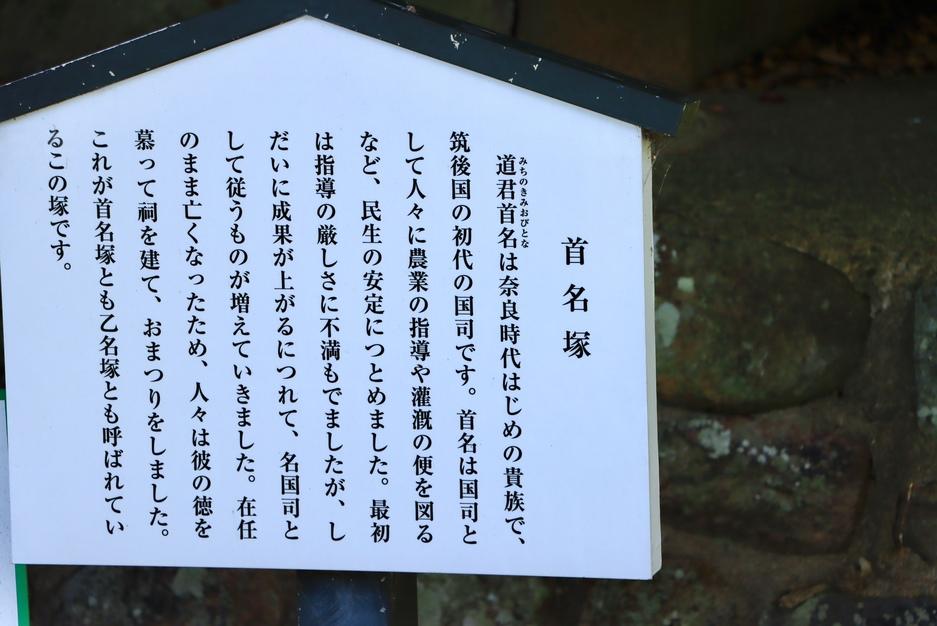 首名塚
みちのきみおびとな
道君首名は奈良時代はじめの貴族で、
筑後国の初代の国司です。首名は国司と
して人々に農業の指導や灌漑の便を図る
など、民生の安定につとめました。最初
は指導の厳しさに不満もでましたが、し
だいに成果が上がるにつれて、名国司と
して従うものが増えていきました。在任
のまま亡くなったため、人々は彼の徳を
慕って祠を建て、おまつりをしました。
これが首名塚とも乙名塚とも呼ばれてい
るこの塚です。